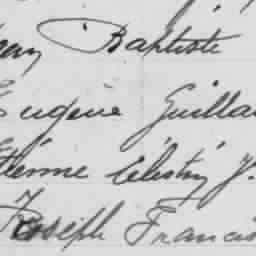 Baptiste
Eugène Guillau
Etienne Célestin J.
Joseph Francis